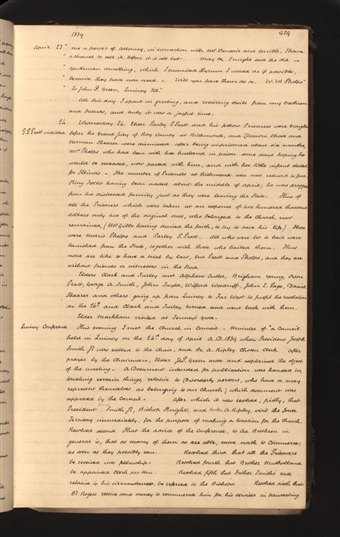 1839
924
April 23 me a power of Attorney, in connection with
a chance to sell it before it is all lost. May be, I might sell the old
gentleman something, which I promised Hyrum I would do if possible,
because they have now need. Will you have them do so. W. W. Phelps
To John P. Green, Quincy Ill.
All this day I spent in greeting, and receiving visits from my brethren
and friends, and truly it was a joyful time.
24 Wednesday 24. Elder Parley P. Pratt and his fellow Prisoners were brought
before the grand Jury of Ray County at Richmond, and Darwin Chase and
Norman Shearer were dismissed after being imprisoned about six months.
Mrs Phelps who had been with her husband in prison some days hoping he
would be released, now parted with him, and with her little infant started
for Illinois. The number of Prisoners at Richmond was now reduced to four.
King Follet having been added about the middle of April; he was dragged
from his distressed family just as they were leaving the State. Thus of
all the Prisoners which were taken at an expense of two hundred thousand
dollars only two of the original ones, who belonged to the church, now
remained (Mr Gibbs having denied the faith, to try to save his life) these
were Morris Phelps and Parley P. Pratt. All who were let to bail were
banished from the State, together with those who bailed them. Thus
none are like to have a trial by law, but Pratt and Phelps, and they are
without friends or witnesses in the State.
Elders Clark and Turley met Alpheus Cutler, Brigham Young, Orson
Pratt, George A. Smith, John Taylor, Wilford Woodruff, John E. Page, Daniel
Shearer and others going up from Quincy to Far West to fulfil the revelation
on the 26th and Clark and Turley turned and went back with them.
Elder Markham visited at Tenney's grove.
Quincy Conference This evening I met the Church in Council. Minutes of "a Council
held in Quincy on the 24th day of April A.D. 1839 when President Joseph
Smith Jr. was called to the chair, and Dr. A. Ripley chosen Clerk. After
prayer by the Chairman, Elder Jno P. Green arose and explained the object
of the meeting. A Document intended for publication was handed in,
touching certain things relative to disorderly persons, who have or may
represent themselves as belonging to our Church; which document was
approved by the Council. After which it was resolved, firstly, that
President Smith Jr., Bishop Knight, and brother A. Ripley, visit the Iowa
Territory immediately, for the purpose of making a location for the Church.
Resolved second That the advice of the Conference, to the Brethren in
general is, that as many of them as are able, move north to Commerce,
as soon as they possibly can. Resolved third that all the Prisoners
be received into fellowship. Resolved fourth that Brother Mulholland
be appointed Clerk pro tem. Resolved fifth that Father Smith's case
relative to his circumstances, be referred to the Bishops. Resolved sixth that
Br Rogers receive some money to remunerate him for his services in transacting